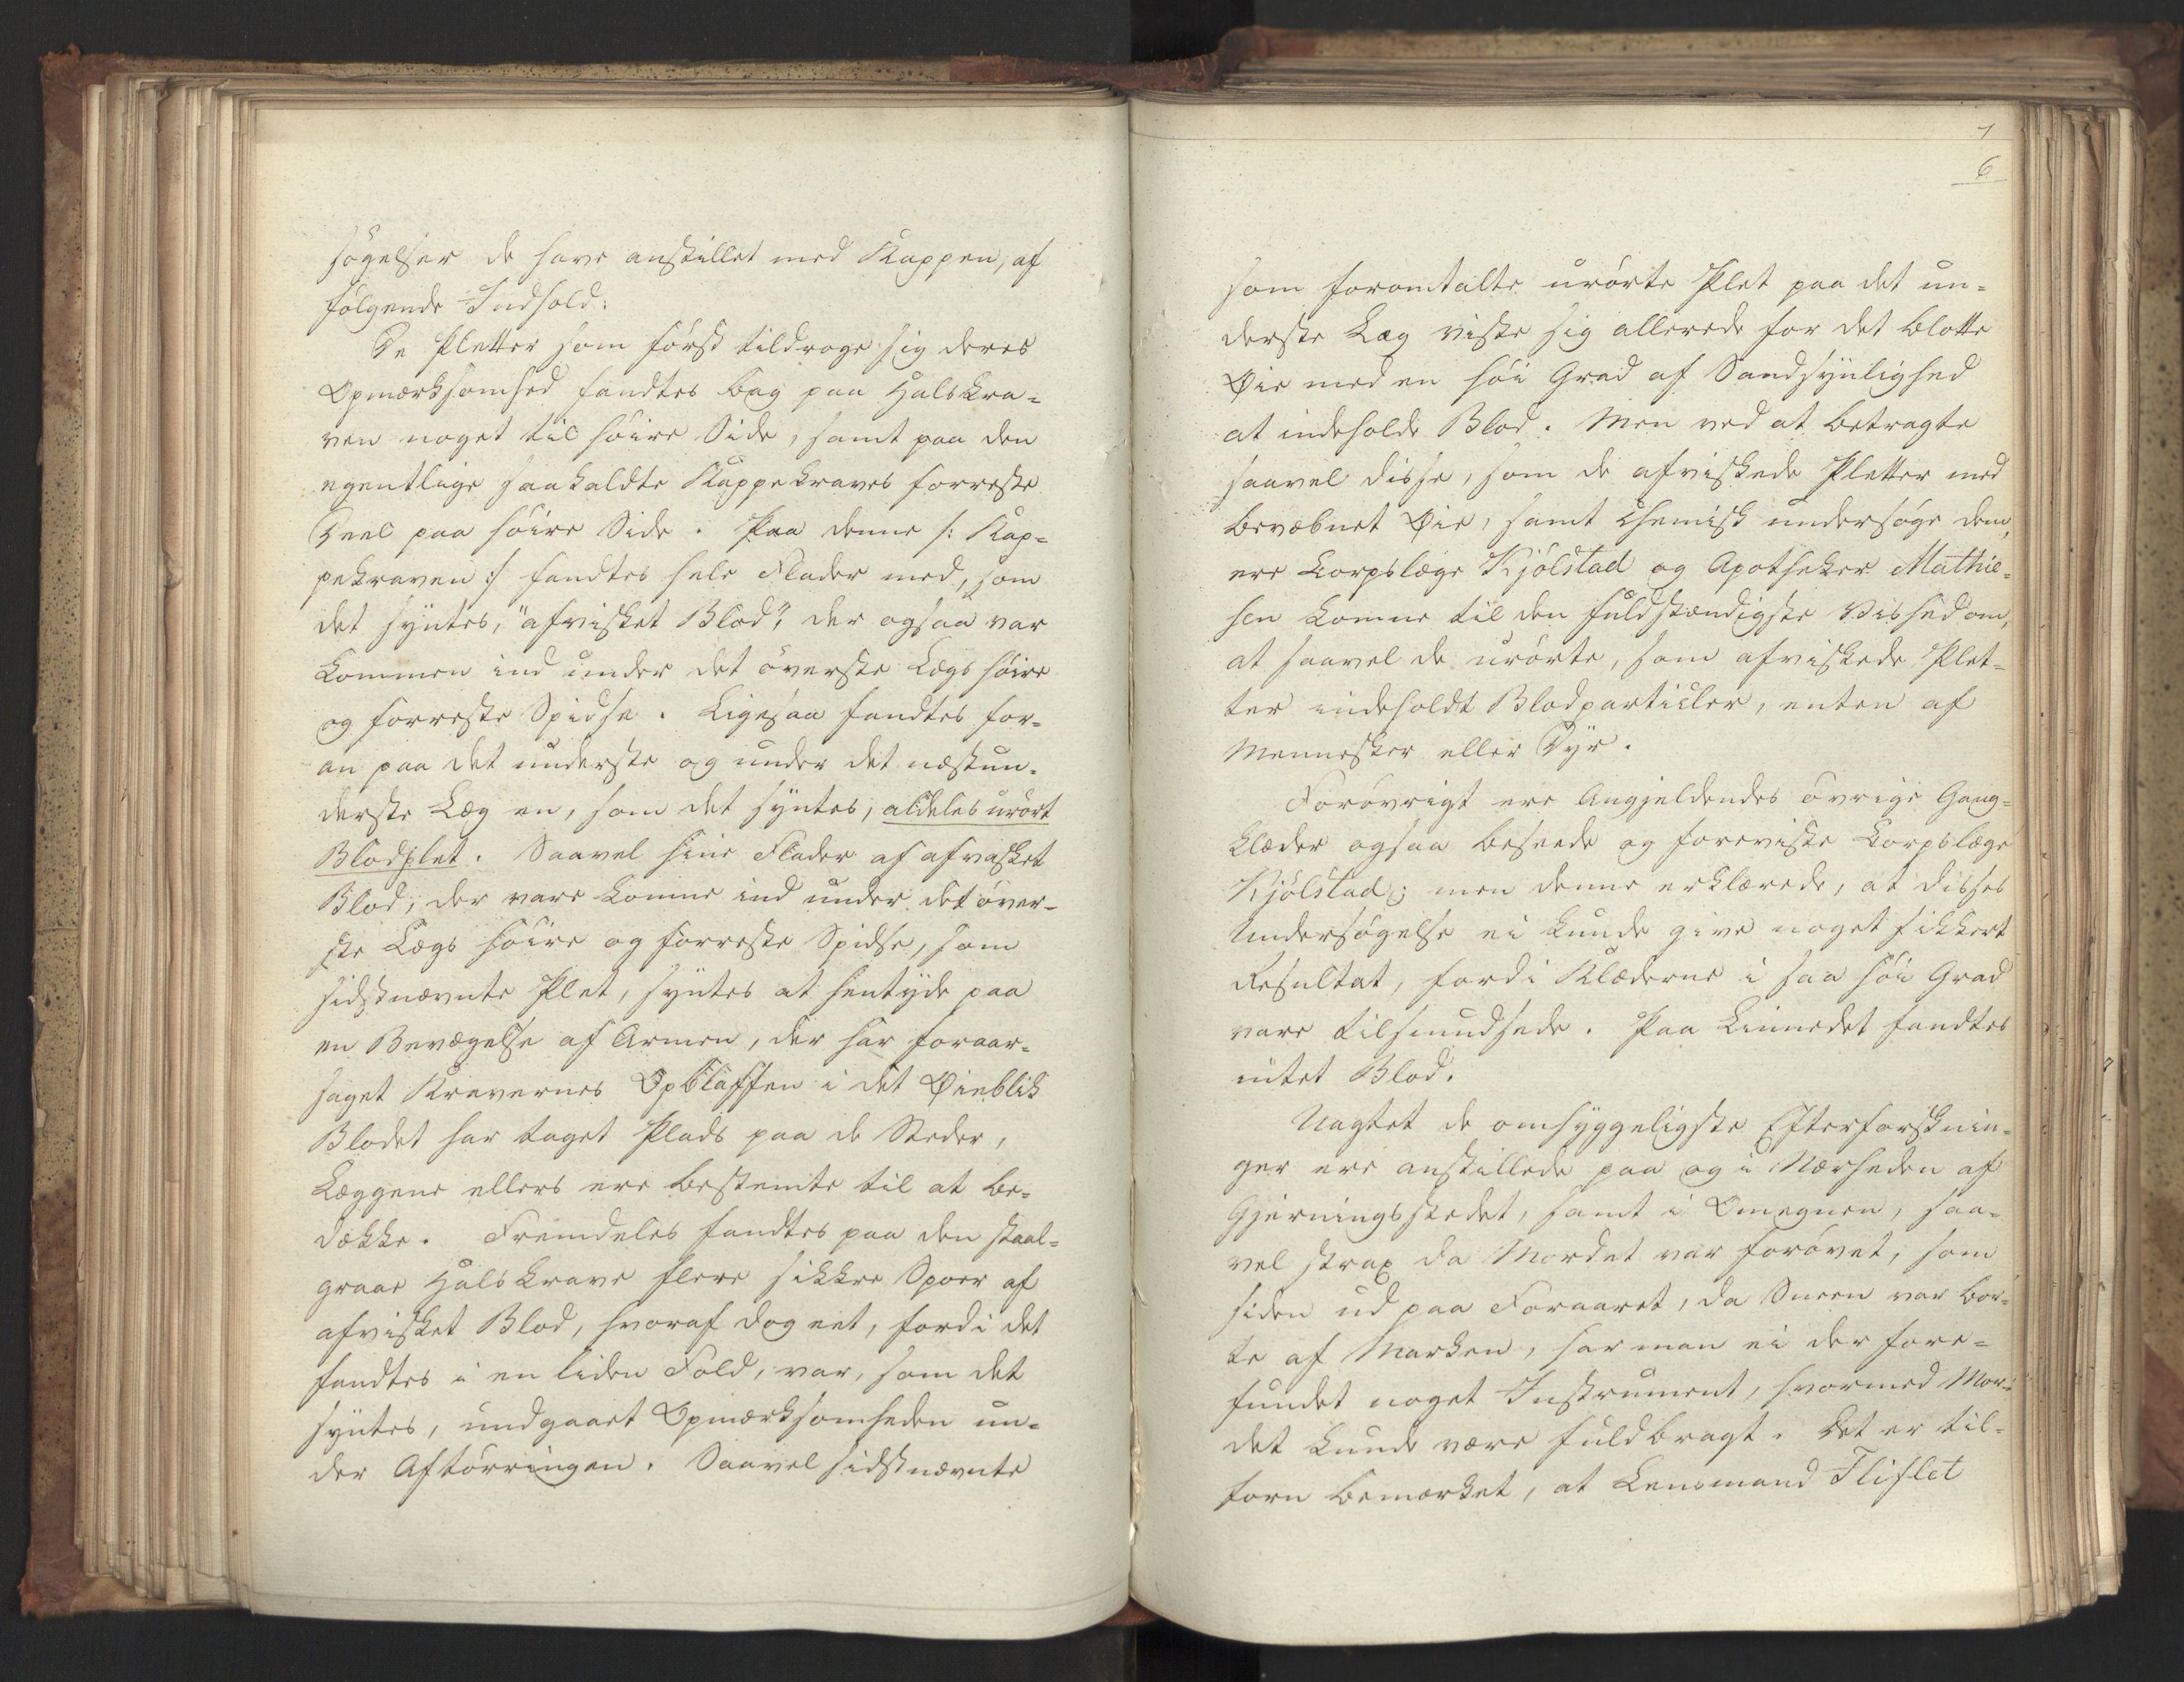 søgelser de have anstillet med Kappen, af
følgende Indhold:
De Pletter som først tildroge sig deres
Opmærksomhed fandtes bag paa Halskra=
ven noget til høire Side, samt paa den
egentlige saakaldte Kappekraves forreste
Deel paa høire Side. Paa denne /: Kap=
pekraven :/ fandtes hele Flader med, som
det syntes, "afvisket Blod", der ogsaa var
kommen ind under det øverste Lægs høire
og forreste Spidse. Ligesaa fandtes for=
an paa det underste og under det næstun=
derste Læg en, som det syntes, aldeles urørt
Blodplet. Saavel hine Flader af afvasket
Blod, der vare komne ind under det øver=
ste Lægs høire og forreste Spidse, som
sidstnævnte Plet, syntes at hentyde paa
en Bevægelse af Armen, der har foraar=
saget Kravernes Opblaffen i det Øieblik
Blodet har taget Plads paa de Steder,
Læggene ellers ere bestemte til at be=
dække. Fremdeles fandtes paa den staal=
graae Halskrave flere sikkre Spoer af
afvisket Blod, hvoraf dog eet, fordi det
fandtes i en liden Fold, var, som det
syntes, undgaaet Opmærksomheden un=
der Aftørringen. Saavel sidstnævnte
7
6
som foromtalte urørte Plet paa det un=
derste Læg viste sig allerede for det blotte
Øie med en høi Grad af Sandsynlighed
at indeholde Blod. Men ved at betragte
saavel disse, som de afviskede Pletter med
bevæbnet Øie, samt chemisk undersøge dem,
ere Corpslæge Kjølstad og Apotheker Mathie=
sen komne til den fuldstændigste Vished om,
at saavel de urørte, som afviskede Plet=
ter indeholdt Blodparticler, enten af
Mennesker eller Dyr.
Forøvrigt ere Angjeldendes øvrige Gang=
klæder ogsaa beseede og foreviste Corpslæge
Kjølstad; men denne erklærede, at disses
Undersøgelse ei kunde give noget sikkert
Resultat, fordi Klæderne i saa høi Grad
vare tilsmudsede. Paa Linnedet fandtes
intet Blod.
Uagtet de omhyggeligste Efterforsknin=
ger ere anstillede paa og i Nærheden af
Gjerningsstedet, samt i Omegnen, saa=
vel strax da Mordet var forøvet, som
siden ud paa Foraaret, da Sneen var bor=
te af Marken, har man ei der fore=
fundet noget Instrument, hvormed Mor=
det kunde være fuldbragt. Det er til=
forn bemærket, at Lensmand Fliflet